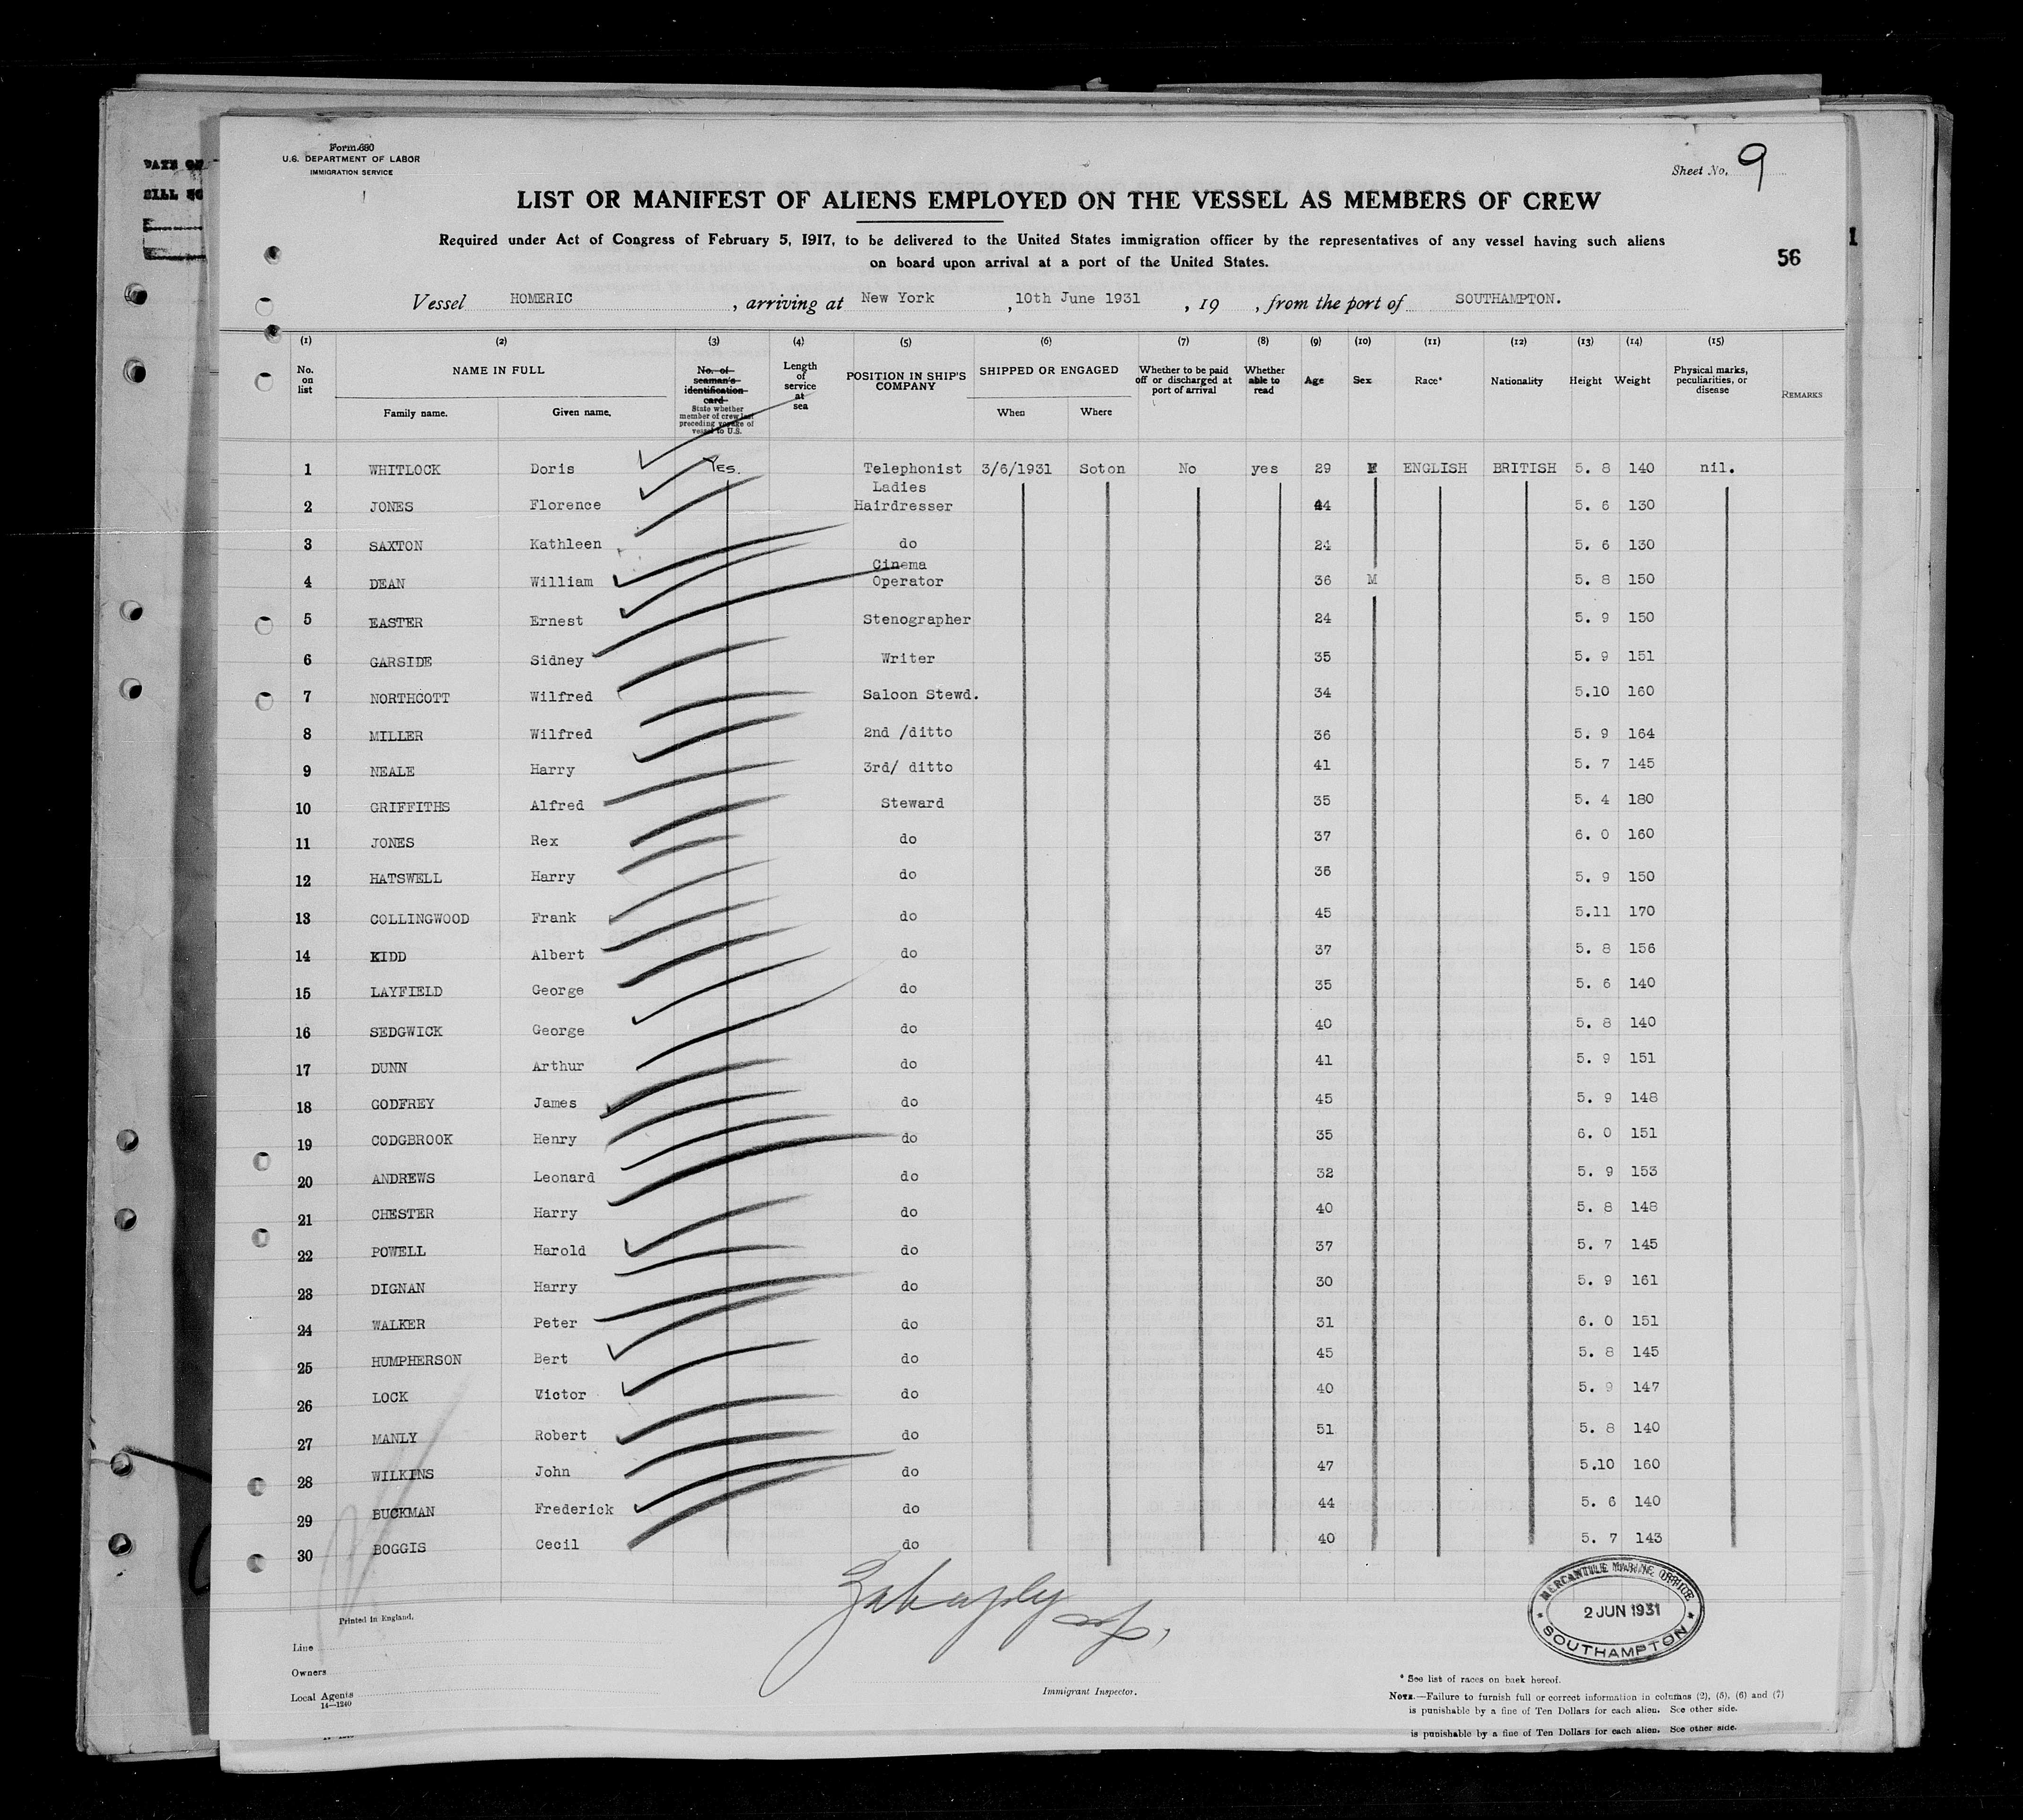 DATE OF
BILL NO
Form 680
U.S. DEPARTMENT OF LABOR
IMMIGRATION SERVICE
Sheet No. 9
LIST OR MANIFEST OF ALIENS EMPLOYED ON THE VESSEL AS MEMBERS OF CREW
Required under Act of Congress of February 5, 1917, to be delivered to the United States immigration officer by the representatives of any vessel having such aliens
on board upon arrival at a port of the United States.
56
Vessel HOMERIC , arriving at New York , 10th June 1931 , 19 , from the port of SOUTHAMPTON.
(1) (2) (3) (4) (5) (6) (7) (8) (9) (10) (11) (12) (13) (14) (15)
No. on list NAME IN FULL Family name. Given name. No. of seaman's identification card State whether member of crew last preceding voyage of vessel to U.S. Length of service at sea POSITION IN SHIP'S COMPANY SHIPPED OR ENGAGED When Where Whether to be paid off or discharged at port of arrival Whether able to read Age Sex Race* Nationality Height Weight Physical marks, peculiarities, or disease REMARKS
1 WHITLOCK Doris Yes. Telephonist 3/6/1931 Soton No yes 29 F ENGLISH BRITISH 5. 8 140 nil.
2 JONES Florence Ladies Hairdresser 44 5. 6 130
3 SAXTON Kathleen do 24 5. 6 130
4 DEAN William Cinema Operator 36 M 5. 8 150
5 EASTER Ernest Stenographer 24 5. 9 150
6 GARSIDE Sidney Writer 35 5. 9 151
7 NORTHCOTT Wilfred Saloon Stewd. 34 5.10 160
8 MILLER Wilfred 2nd /ditto 36 5. 9 164
9 NEALE Harry 3rd/ ditto 41 5. 7 145
10 GRIFFITHS Alfred Steward 35 5. 4 180
11 JONES Rex do 37 6. 0 160
12 HATSWELL Harry do 36 5. 9 150
13 COLLINGWOOD Frank do 45 5.11 170
14 KIDD Albert do 37 5. 8 156
15 LAYFIELD George do 35 5. 6 140
16 SEDGWICK George do 40 5. 8 140
17 DUNN Arthur do 41 5. 9 151
18 GODFREY James do 45 5. 9 148
19 CODGBROOK Henry do 35 6. 0 151
20 ANDREWS Leonard do 32 5. 9 153
21 CHESTER Harry do 40 5. 8 148
22 POWELL Harold do 37 5. 7 145
23 DIGNAN Harry do 30 5. 9 161
24 WALKER Peter do 31 6. 0 151
25 HUMPHERSON Bert do 45 5. 8 145
26 LOCK Victor do 40 5. 9 147
27 MANLY Robert do 51 5. 8 140
28 WILKINS John do 47 5.10 160
29 BUCKMAN Frederick do 44 5. 6 140
30 BOGGIS Cecil do 40 5. 7 143
MERCANTILE MARINE OFFICE
2 JUN 1931
SOUTHAMPTON
Printed in England.
Line
Owners
Local Agents
14—1240
Immigrant Inspector.
* See list of races on back hereof.
NOTE.—Failure to furnish full or correct information in columns (2), (5), (6) and (7)
is punishable by a fine of Ten Dollars for each alien. See other side.
is punishable by a fine of Ten Dollars for each alien. See other side.